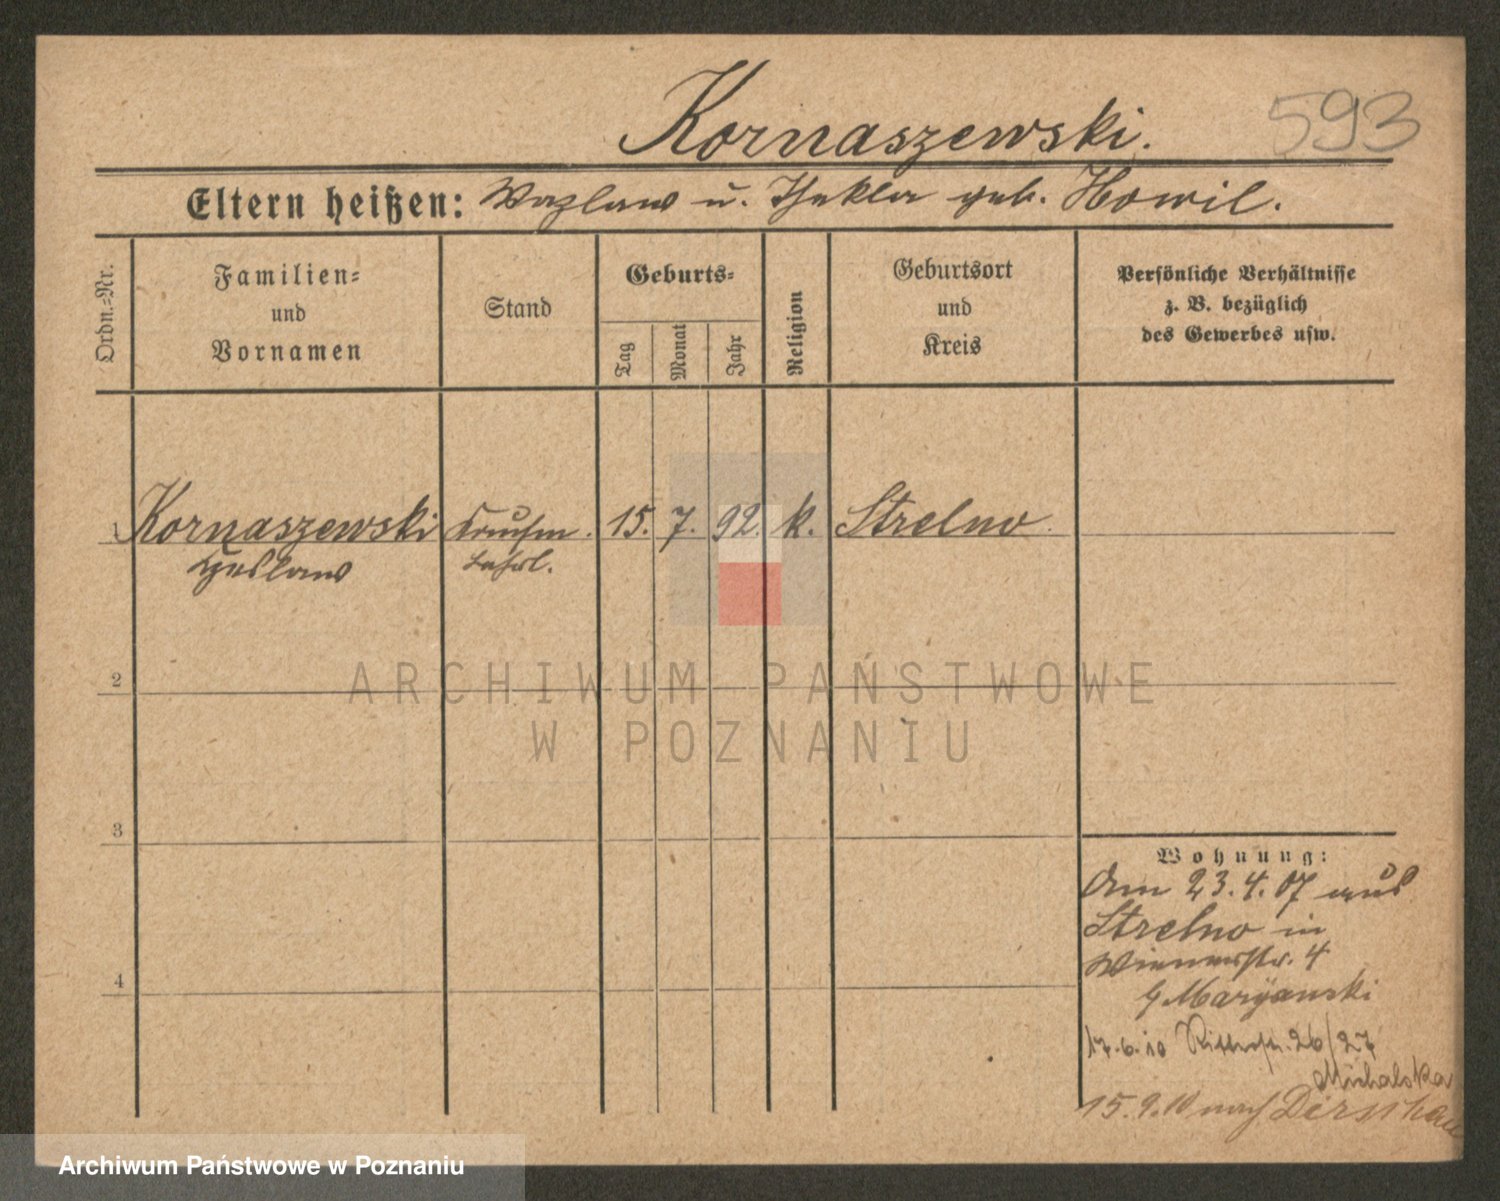 Kornaszewski.
593
Eltern heißen: Wazlaw u. Thekla geb. Howil.
Ordn.-Nr.
Familien-
und
Vornamen
Stand
Geburts-
Tag
Monat
Jahr
Religion
Geburtsort
und
Kreis
Persönliche Verhältnisse
z. B. bezüglich
des Gewerbes usw.
1 Kornaszewski Kaufm. 15. 7. 92. k. Strelno
Lehrl.
2
3
4
ARCHIWUM PAŃSTWOWE
W POZNANIU
Wohnung:
Am 23.4.07 aus
Strelno in
Wienerstr. 4
Maryanski
17.6.10 Ritterstr. 26/27
Michalska
15.9.10 nach Dirschau
Archiwum Państwowe w Poznaniu